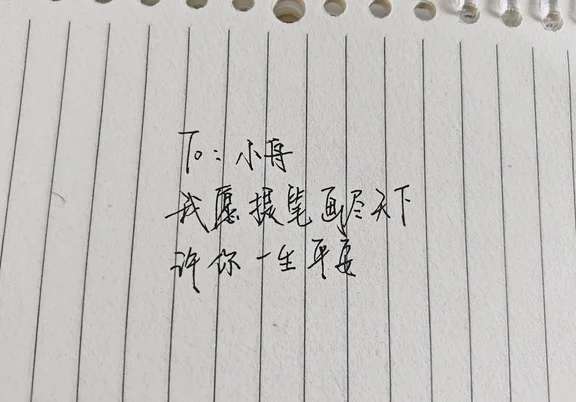 To: 小再
我愿提笔画尽天下
许你一生平安